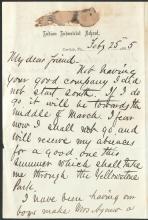 Indian Industrial School,
Carlisle, Pa.
Feb 25th 5
My dear friend.
Not having
your good company I did
not start south. If I
do go it will be towards the
middle of March. I fear
now I shall not go, and
will reserve my absences
for a good one this
summer which shall take
me through the Yellowstone
Park.
I have been having our
boys make Mrs Agnew a